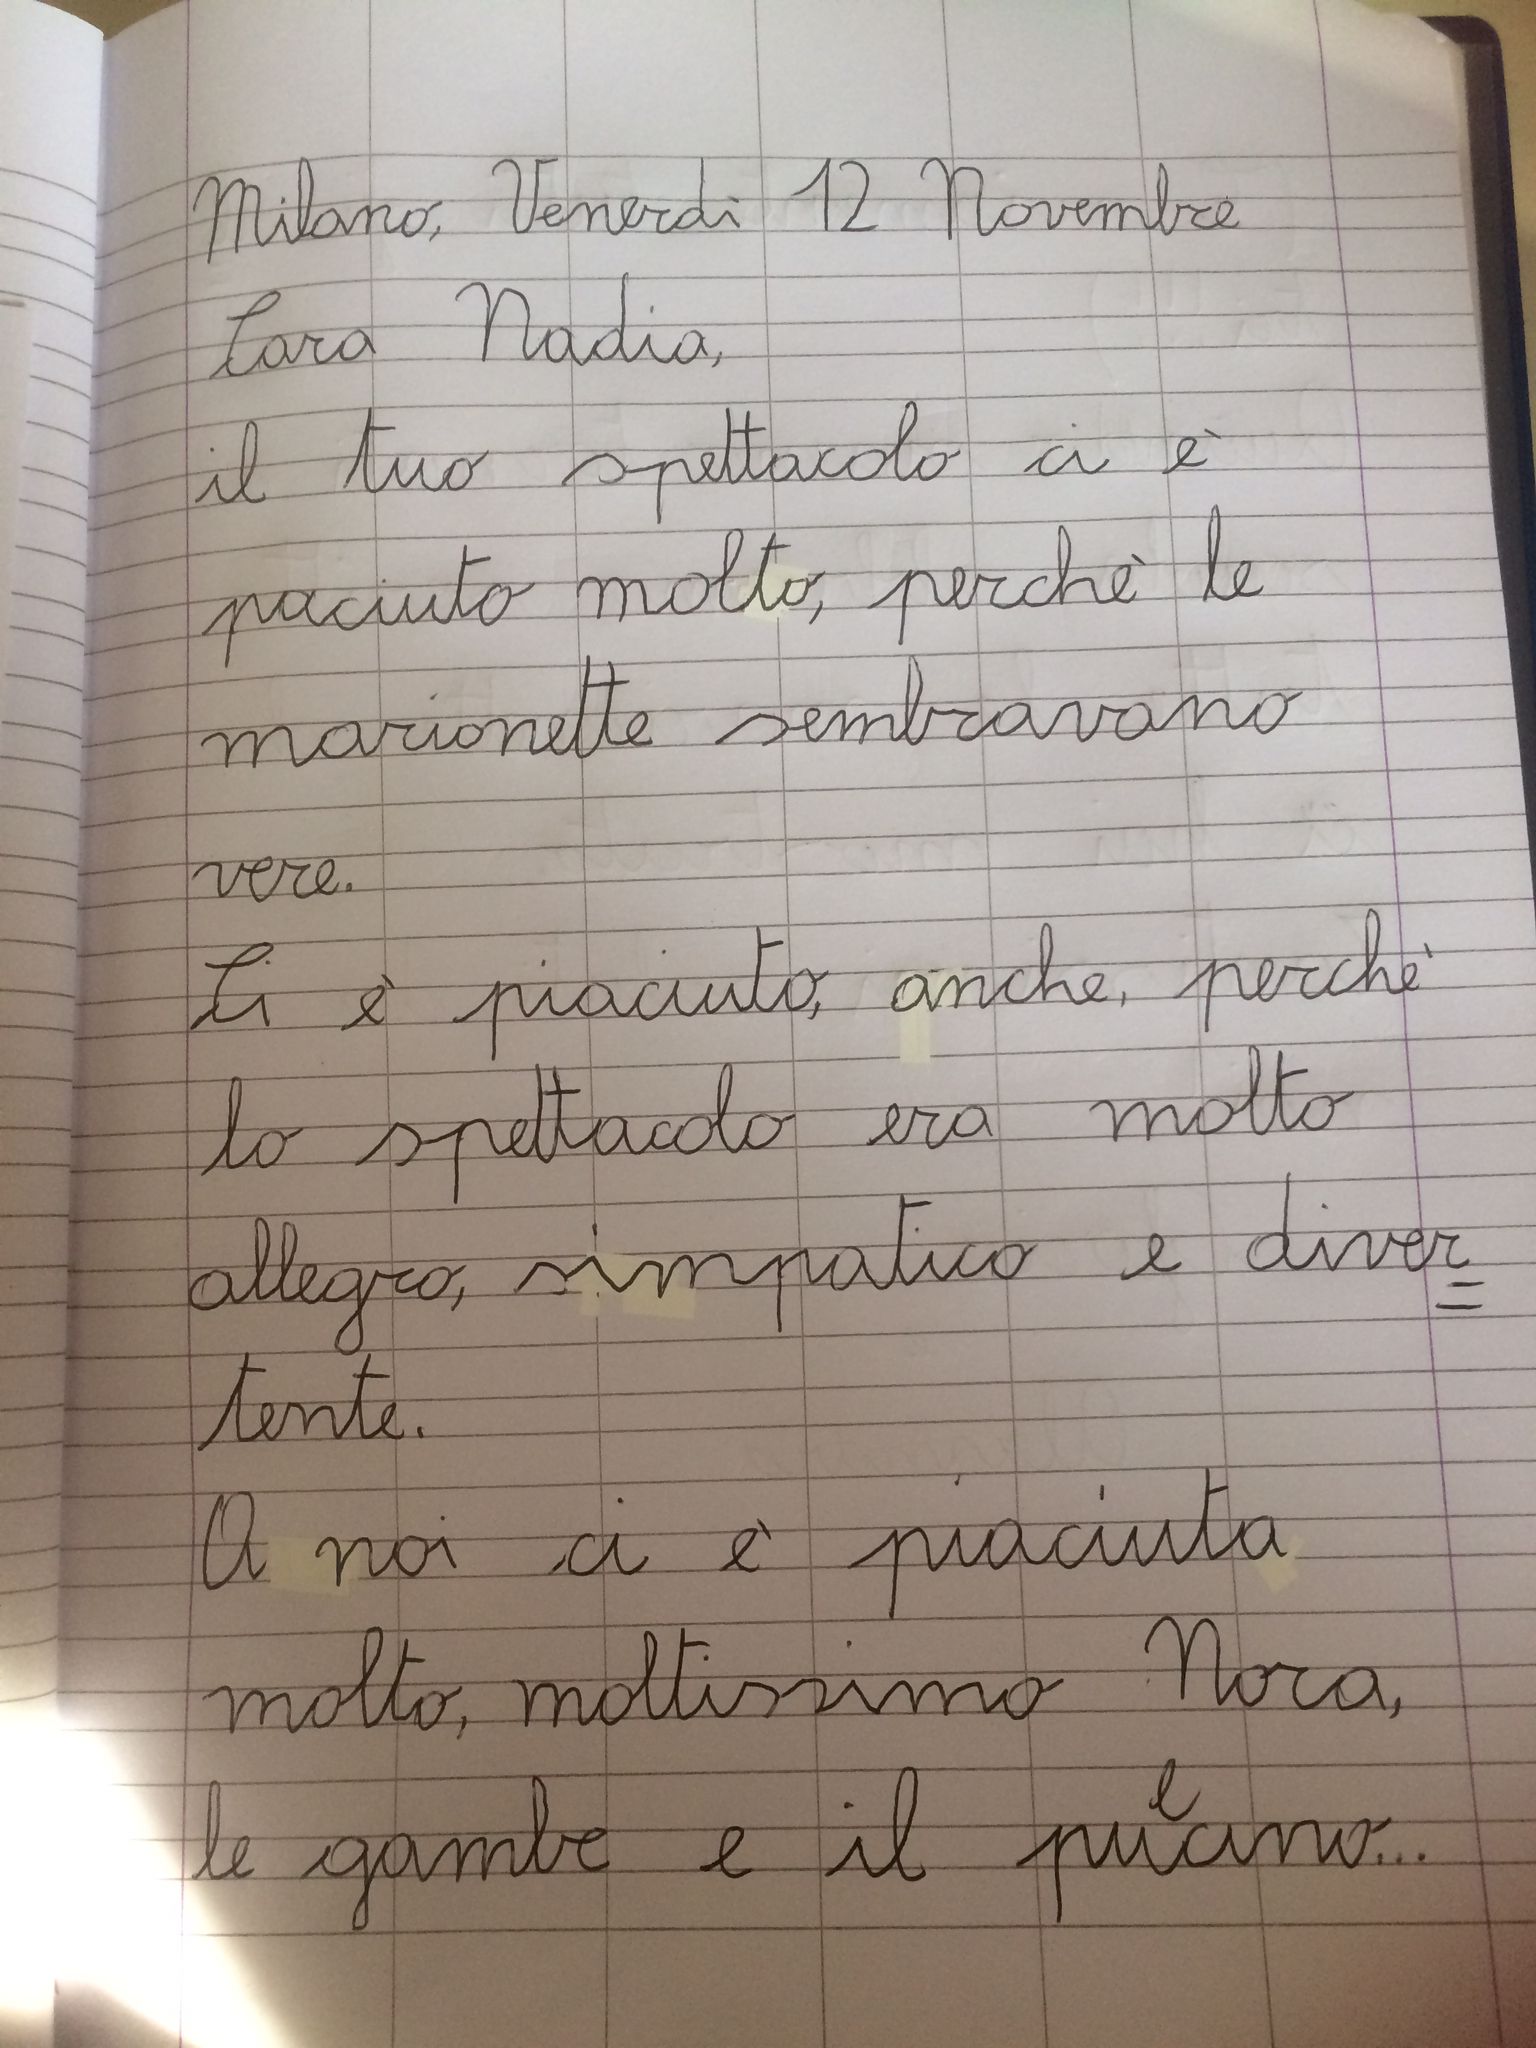 Milano, Venerdì 12 Novembre
Cara Nadia,
il tuo spettacolo ci è
paciuto molto, perchè le
marionette sembravano
vere.
Ci è piaciuto, anche, perchè
lo spettacolo era molto
allegro, simpatico e diver=
tente.
A noi ci è piaciuta
molto, moltissimo Nora,
le gambe e il